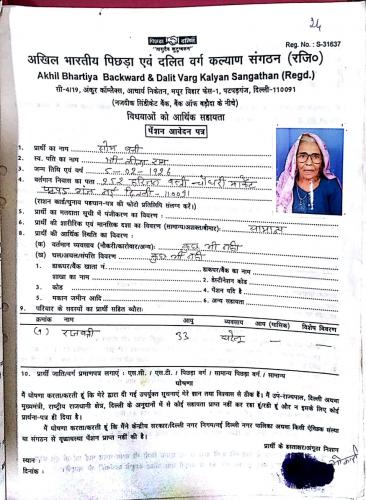 24
पिछड़ा एवं दलित
"वसुधैव कुटुम्बकम"
Reg. No. : S-31637
अखिल भारतीय पिछड़ा एवं दलित वर्ग कल्याण संगठन (रजि०)
Akhil Bhartiya Backward & Dalit Varg Kalyan Sangathan (Regd.)
सी-4/19, अंकुर कॉम्प्लैक्स, आचार्य निकेतन, मयूर विहार फेस-1, पटपड़गंज, दिल्ली-110091
(नजदीक सिंडीकेट बैंक, बैंक ऑफ बड़ौदा के नीचे)
विधवाओं को आर्थिक सहायता
पेंशन आवेदन पत्र
1. प्रार्थी का नाम
2. स्व. पति का नाम श्री राम
3. जन्म तिथि एवं वर्ष 5-02-1926
4. वर्तमान निवास का पता 252 बस्ती चौधरी मार्केट
नई दिल्ली-110091
(राशन कार्ड/चुनाव पहचान-पत्र की फोटो प्रतिलिपि संलग्न करें।)
5. प्रार्थी का मतदाता सूची में पंजीकरण का विवरण :
6. प्रार्थी की शारीरिक और मानसिक दशा का विवरण (सामान्य/अशक्त/बीमार): सामान्य
7. प्रार्थी की आर्थिक स्थिति का विवरण :
(क) वर्तमान व्यवसाय (नौकरी/कारोबार/अन्य): कुछ भी नहीं
(ख) चल/अचल/संपत्ति विवरण कुछ भी नहीं
1. डाकघर/बैंक खाता नं. डाकघर/बैंक का नाम :
शाखा का नाम : 2. डेस्टीनेशन कोड
3. कोड 4. पेंशन यदि है
5. मकान जमीन आदि 6. अन्य सहायता
9. परिवार के सदस्यों का प्रार्थी सहित ब्यौरा:
क्रमांक नाम आयु व्यवसाय आय (मासिक) विशेष विवरण
(1) 33 घरेलू
10. प्रार्थी जाति/वर्ग प्रमाणपत्र लगाएं : एस.सी. / एस.टी. / पिछड़ा वर्ग / सामान्य पिछड़ा वर्ग. / सामान्य
घोषणा
मैं घोषणा करता/करती हूं कि मेरे द्वारा दी गई उपर्युक्त सूचनाएं मेरे ज्ञान तथा विश्वास से ठीक हैं। मैं उप-राज्यपाल, दिल्ली अथवा
मुख्यमंत्री, राष्ट्रीय राजधानी क्षेत्र, दिल्ली के अनुदानों में से कोई सहायता प्राप्त नहीं कर रहा हूं/रही हूं और न इसके लिए कोई
प्रार्थना-पत्र ही दिया है।
मैं घोषणा करता/करती हूं कि मैंने केन्द्रीय सरकार/दिल्ली नगर निगम/नई दिल्ली नगर पालिका अथवा किसी ऐच्छिक संस्था
या संगठन से वृद्धावस्था पेंशन प्राप्त नहीं की है।
प्रार्थी के हस्ताक्षर/अंगूठा निशान
स्थान :
दिनांक :